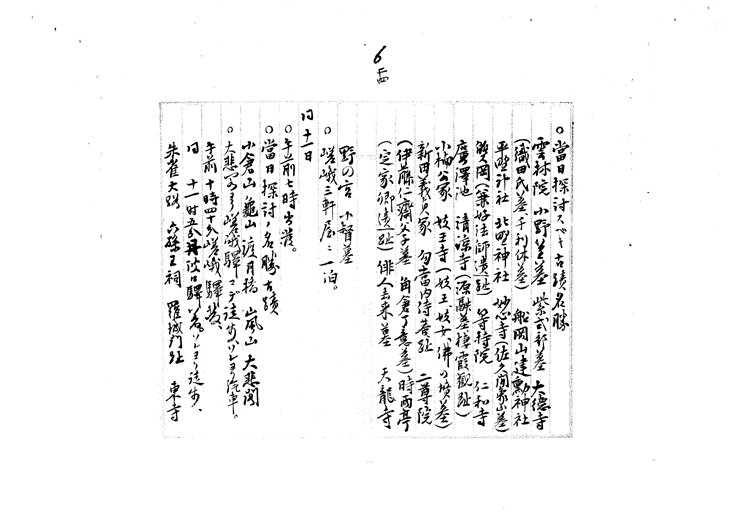 6
〇當日探討スベキ古蹟名勝
雲林院 小野篁墓 紫式部墓 大德寺
(織田氏墓千利休墓) 船岡山建勳神社
平野神社 北野神社 妙心寺(佐久間象山墓)
雙岡(兼好法師遺趾) 等持院 仁和寺
廣澤池 清凉寺(源融墓棲霞觀趾)
小楠公冢 祇王寺(妓王妓女佛の墳墓)
新田義貞冢 勾當内侍菴趾 二尊院
(伊藤仁齋父子墓 角倉了意墓)時雨亭
(定家卿遺趾)俳人去来墓 天龍寺
野の宮 小督墓
〇 嵯峨三軒屋ニ一泊。
同十一日
〇午前七時出發。
〇當日探討ノ名勝古蹟
小倉山 龜山 渡月橋 嵐山 大悲閣
〇大悲閣ヨリ嵯峨驛マデ徒歩ソレヨリ汽車。
午前十時四十分嵯峨驛發、
同 十一時五分丹波口驛著ソレヨリ徒歩、
朱雀大路 六孫王祠 羅城門趾 東寺